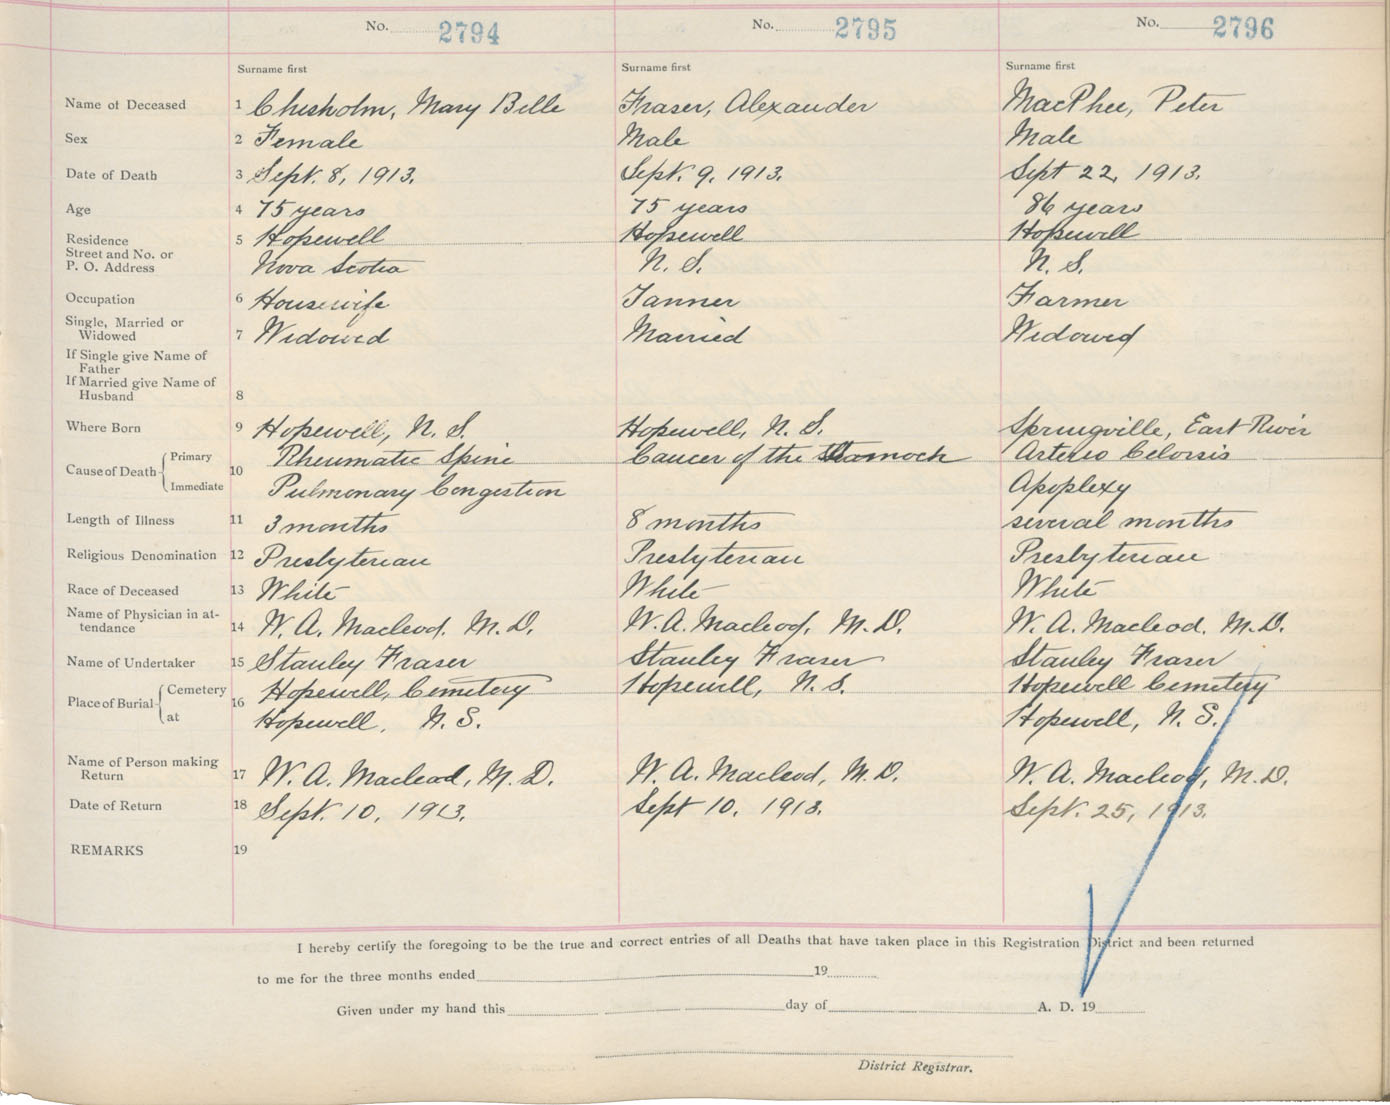 No. 2794 No. 2795 No. 2796
Surname first Surname first Surname first
Name of Deceased 1 Chisholm, Mary Belle Fraser, Alexander MacPhee, Peter
Sex 2 Female Male Male
Date of Death 3 Sept. 8, 1913. Sept. 9, 1913. Sept 22, 1913.
Age 4 75 years 75 years 86 years
Residence 5 Hopewell Hopewell Hopewell
Street and No. or
P. O. Address Nova Scotia N. S. N. S.
Occupation 6 Housewife Tanner Farmer
Single, Married or
Widowed 7 Widowed Married Widowed
If Single give Name of
Father
If Married give Name of
Husband 8
Where Born 9 Hopewell, N. S. Hopewell, N. S. Springville, East River
Cause of Death Primary 10 Rheumatic Spine Cancer of the Stamoch Arterio Celorsis
Immediate Pulmonary Congestion Apoplexy
Length of Illness 11 3 months 8 months several months
Religious Denomination 12 Presbyterian Presbyterian Presbyterian
Race of Deceased 13 White White White
Name of Physician in at-
tendance 14 W. A. Macleod, M. D. W. A. Macleod, M. D. W. A. Macleod, M. D.
Name of Undertaker 15 Stanley Fraser Stanley Fraser Stanley Fraser
Place of Burial Cemetery 16 Hopewell, Cemetery Hopewell, N. S. Hopewell Cemetery
at Hopewell, N. S. Hopewell, N. S.
Name of Person making
Return 17 W. A. Macleod, M. D. W. A. Macleod, M. D. W. A. Macleod, M. D.
Date of Return 18 Sept. 10, 1913. Sept 10, 1913. Sept. 25, 1913.
REMARKS 19
I hereby certify the foregoing to be the true and correct entries of all Deaths that have taken place in this Registration District and been returned
to me for the three months ended 19
Given under my hand this day of A. D. 19
District Registrar.